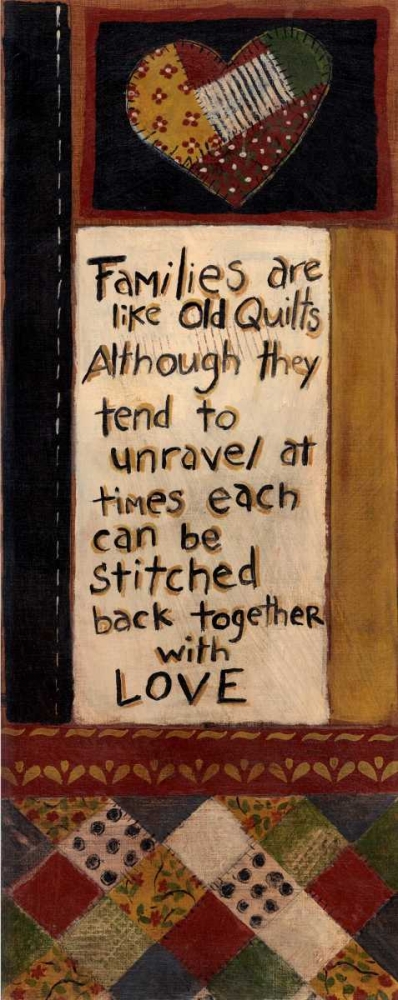 Families are
like Old Quilts
Although they
tend to
unravel at
times each
can be
stitched
back together
with
LOVE